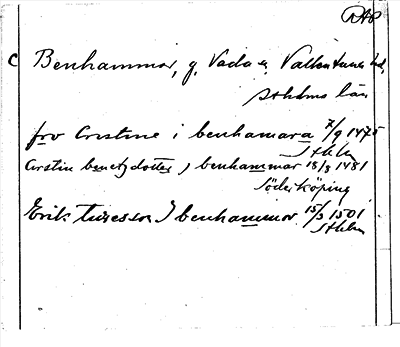 RAP
C Benhammar, g, Vada s, Vallentuna hd,
Sthlms län
fro Cristine i benhamara 7/9 1475
Sthlm
Cristin benctzdotter j benhammar 15/3 1481
Söderköping
Erik turesson J benhammar 15/3 1501
Sthlm